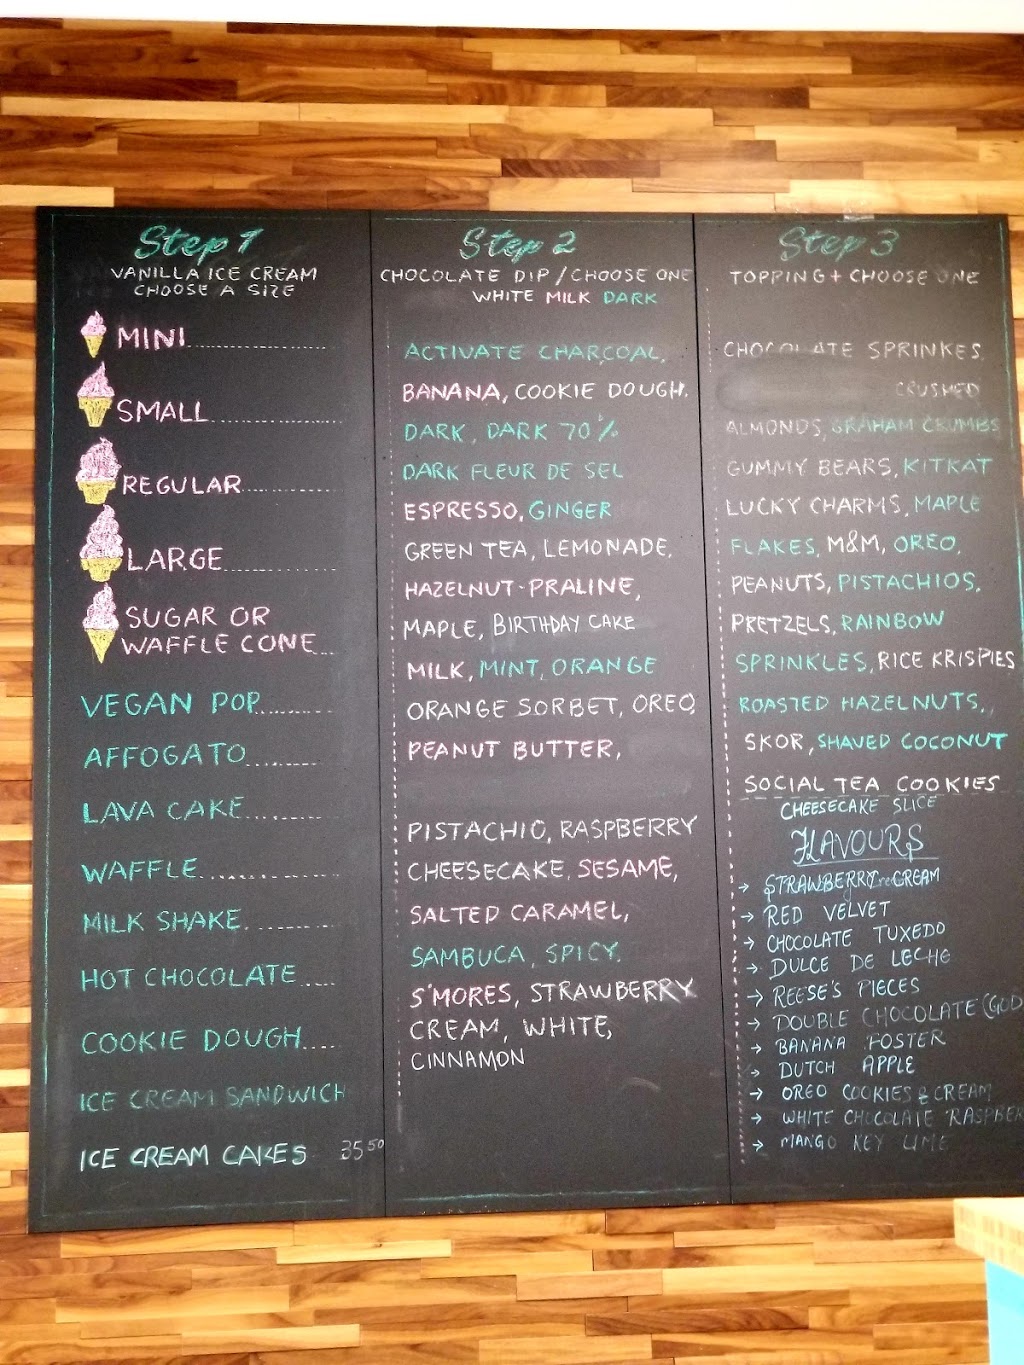 Step 1
VANILLA ICE CREAM
CHOOSE A SIZE
MINI
SMALL
REGULAR
LARGE
SUGAR OR
WAFFLE CONE
VEGAN POP
AFFOGATO
LAVA CAKE
WAFFLE
MILK SHAKE
HOT CHOCOLATE
COOKIE DOUGH
ICE CREAM SANDWICH
ICE CREAM CAKES 35.50
Step 2
CHOCOLATE DIP/CHOOSE ONE
WHITE MILK DARK
ACTIVATE CHARCOAL,
BANANA, COOKIE DOUGH,
DARK, DARK 70%
DARK FLEUR DE SEL
ESPRESSO, GINGER
GREEN TEA, LEMONADE,
HAZELNUT-PRALINE,
MAPLE, BIRTHDAY CAKE
MILK, MINT, ORANGE
ORANGE SORBET, OREO,
PEANUT BUTTER,
PISTACHIO, RASPBERRY
CHEESECAKE, SESAME,
SALTED CARAMEL,
SAMBUCA, SPICY,
S'MORES, STRAWBERRY
CREAM, WHITE,
CINNAMON
Step 3
TOPPING + CHOOSE ONE
CHOCOLATE SPRINKES,
CRUSHED
ALMONDS, GRAHAM CRUMBS
GUMMY BEARS, KITKAT
LUCKY CHARMS, MAPLE
FLAKES, M&M, OREO,
PEANUTS, PISTACHIOS,
PRETZELS, RAINBOW
SPRINKLES, RICE KRISPIES
ROASTED HAZELNUTS,
SKOR, SHAVED COCONUT
SOCIAL TEA COOKIES
CHEESECAKE SLICE
FLAVOURS
→ STRAWBERRY CREAM
→ RED VELVET
→ CHOCOLATE TUXEDO
→ DULCE DE LECHE
→ REESE'S PIECES
→ DOUBLE CHOCOLATE (GOD
→ BANANA FOSTER
→ DUTCH APPLE
→ OREO COOKIES & CREAM
→ WHITE CHOCOLATE RASPBER
→ MANGO KEY LIME